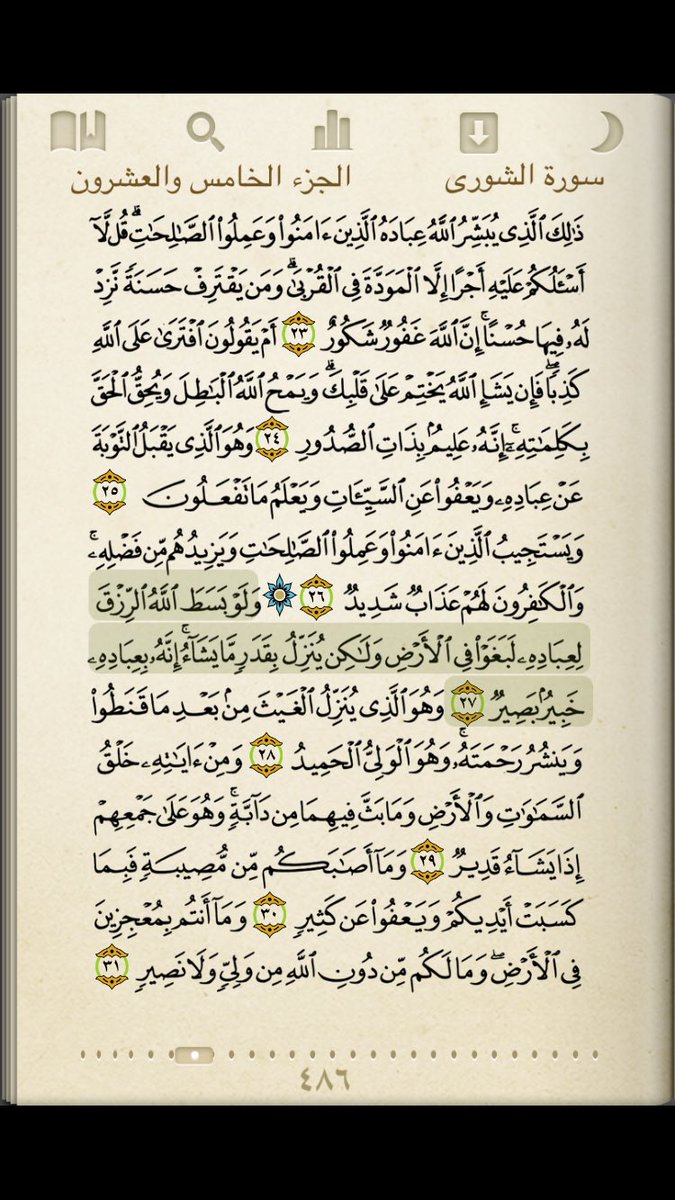 سورة الشورى
الجزء الخامس والعشرون
ذَٰلِكَ ٱلَّذِى يُبَشِّرُ ٱللَّهُ عِبَادَهُ ٱلَّذِينَ ءَامَنُوا۟ وَعَمِلُوا۟ ٱلصَّـٰلِحَـٰتِ ۗ قُل لَّآ
أَسْـَٔلُكُمْ عَلَيْهِ أَجْرًا إِلَّا ٱلْمَوَدَّةَ فِى ٱلْقُرْبَىٰ ۗ وَمَن يَقْتَرِفْ حَسَنَةً نَّزِدْ
لَهُۥ فِيهَا حُسْنًا ۚ إِنَّ ٱللَّهَ غَفُورٌ شَكُورٌ ٢٣ أَمْ يَقُولُونَ ٱفْتَرَىٰ عَلَى ٱللَّهِ
كَذِبًا ۖ فَإِن يَشَإِ ٱللَّهُ يَخْتِمْ عَلَىٰ قَلْبِكَ ۗ وَيَمْحُ ٱللَّهُ ٱلْبَـٰطِلَ وَيُحِقُّ ٱلْحَقَّ
بِكَلِمَـٰتِهِۦٓ ۚ إِنَّهُۥ عَلِيمٌۢ بِذَاتِ ٱلصُّدُورِ ٢٤ وَهُوَ ٱلَّذِى يَقْبَلُ ٱلتَّوْبَةَ
عَنْ عِبَادِهِۦ وَيَعْفُوا۟ عَنِ ٱلسَّيِّـَٔاتِ وَيَعْلَمُ مَا تَفْعَلُونَ ٢٥
وَيَسْتَجِيبُ ٱلَّذِينَ ءَامَنُوا۟ وَعَمِلُوا۟ ٱلصَّـٰلِحَـٰتِ وَيَزِيدُهُم مِّن فَضْلِهِۦ ۚ
وَٱلْكَـٰفِرُونَ لَهُمْ عَذَابٌ شَدِيدٌ ٢٦ وَلَوْ بَسَطَ ٱللَّهُ ٱلرِّزْقَ
لِعِبَادِهِۦ لَبَغَوْا۟ فِى ٱلْأَرْضِ وَلَـٰكِن يُنَزِّلُ بِقَدَرٍ مَّا يَشَآءُ ۚ إِنَّهُۥ بِعِبَادِهِۦ
خَبِيرٌۢ بَصِيرٌ ٢٧ وَهُوَ ٱلَّذِى يُنَزِّلُ ٱلْغَيْثَ مِنۢ بَعْدِ مَا قَنَطُوا۟
وَيَنشُرُ رَحْمَتَهُۥ ۚ وَهُوَ ٱلْوَلِىُّ ٱلْحَمِيدُ ٢٨ وَمِنْ ءَايَـٰتِهِۦ خَلْقُ
ٱلسَّمَـٰوَٰتِ وَٱلْأَرْضِ وَمَا بَثَّ فِيهِمَا مِن دَآبَّةٍ ۚ وَهُوَ عَلَىٰ جَمْعِهِمْ
إِذَا يَشَآءُ قَدِيرٌ ٢٩ وَمَآ أَصَـٰبَكُم مِّن مُّصِيبَةٍ فَبِمَا
كَسَبَتْ أَيْدِيكُمْ وَيَعْفُوا۟ عَن كَثِيرٍ ٣٠ وَمَآ أَنتُم بِمُعْجِزِينَ
فِى ٱلْأَرْضِ ۖ وَمَا لَكُم مِّن دُونِ ٱللَّهِ مِن وَلِىٍّ وَلَا نَصِيرٍ ٣١
٤٨٦